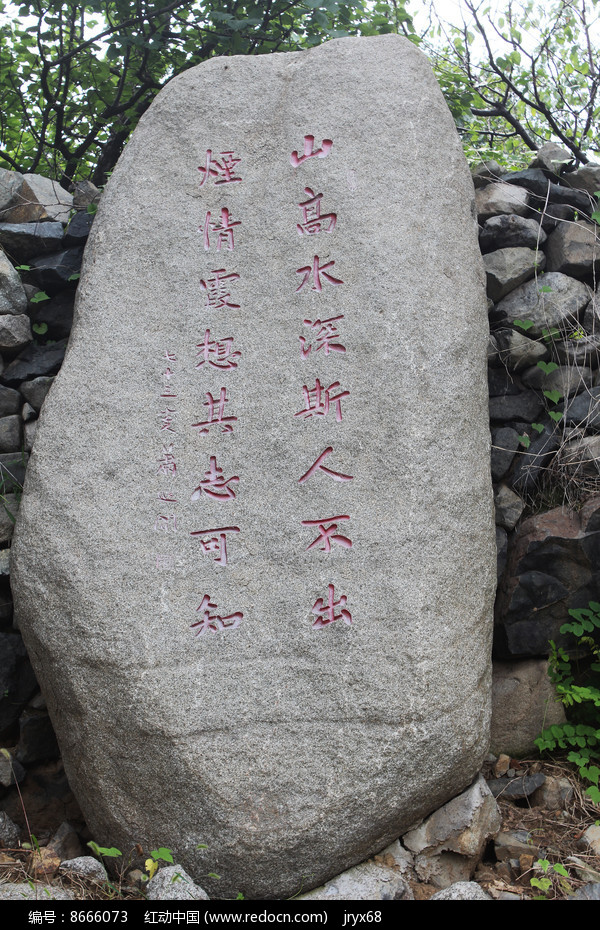 山高水深斯人不出
煙情霞想其志可知
编号：8666073 红动中国(www.redocn.com) jryx68